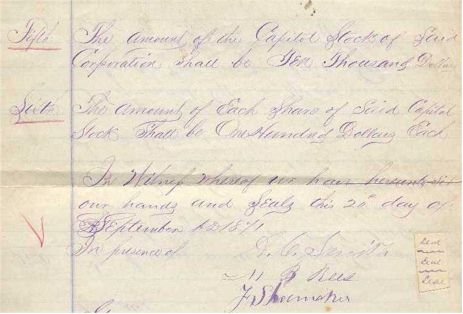 Fifth The Amount of the Capitol Stock of Said
Corporation Shall be Ten Thousand Dollars
Sixth The Amount of Each Share of Said Capitol
Stock Shall be One Hundred Dollars Each
In Witness Whereof we have hereunto set
our hands and Seals this 20 day of
September AD 1871
In presence of
Seal
Seal
Seal
B Rees
F. Shoemaker